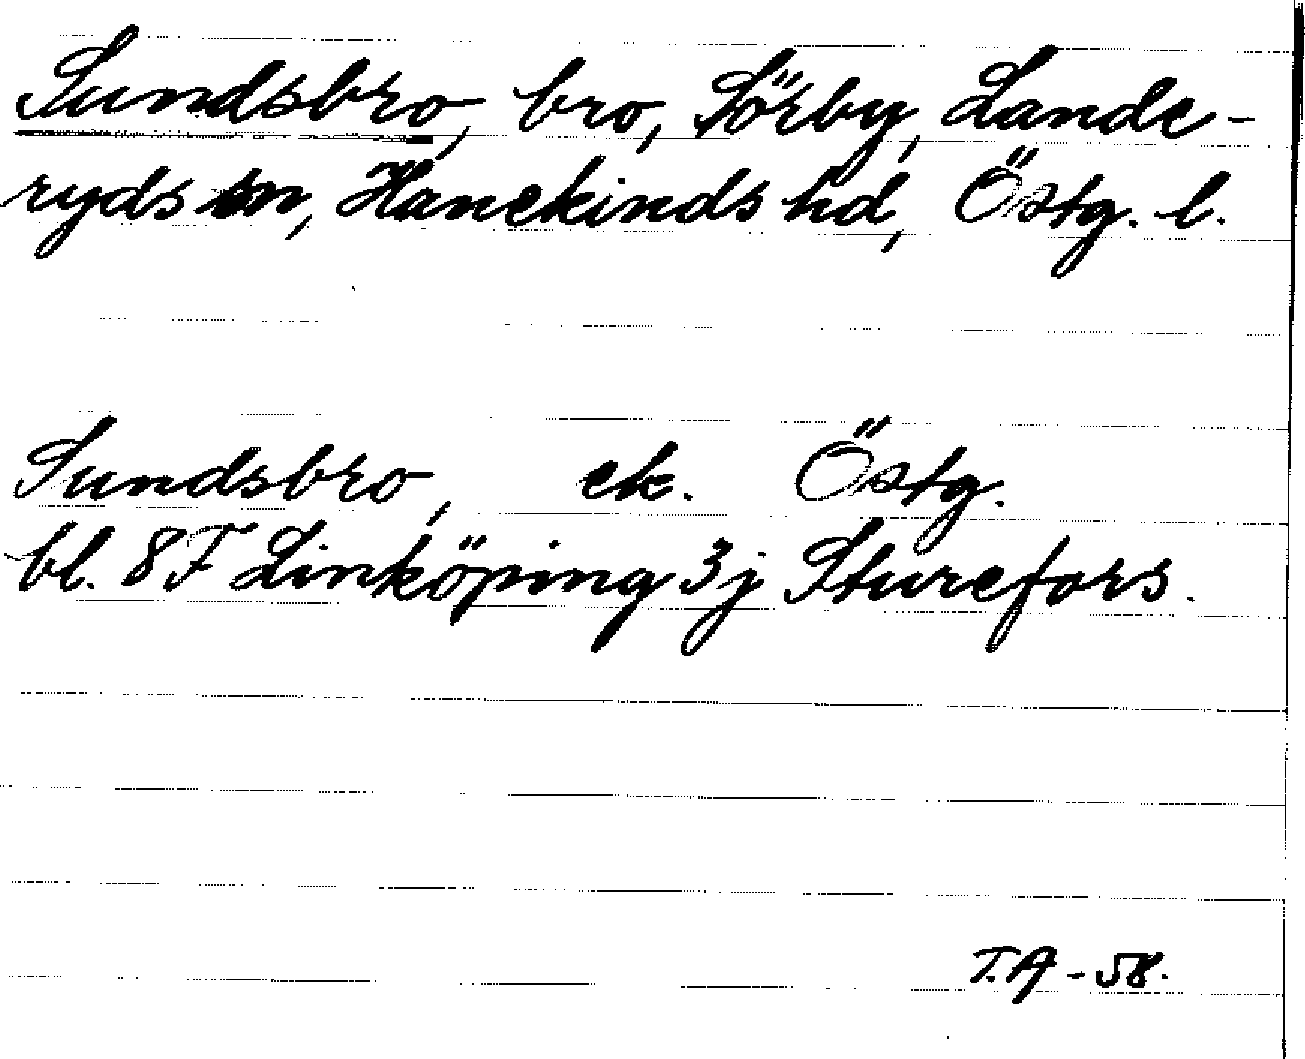 Sundsbro, bro, Sörby, Lande-
ryds sn, Hanekinds hd, Östg. l.
Sundsbro, ek. Östg.
bl. 8F Linköping 3j Sturefors.
T.A - 58.